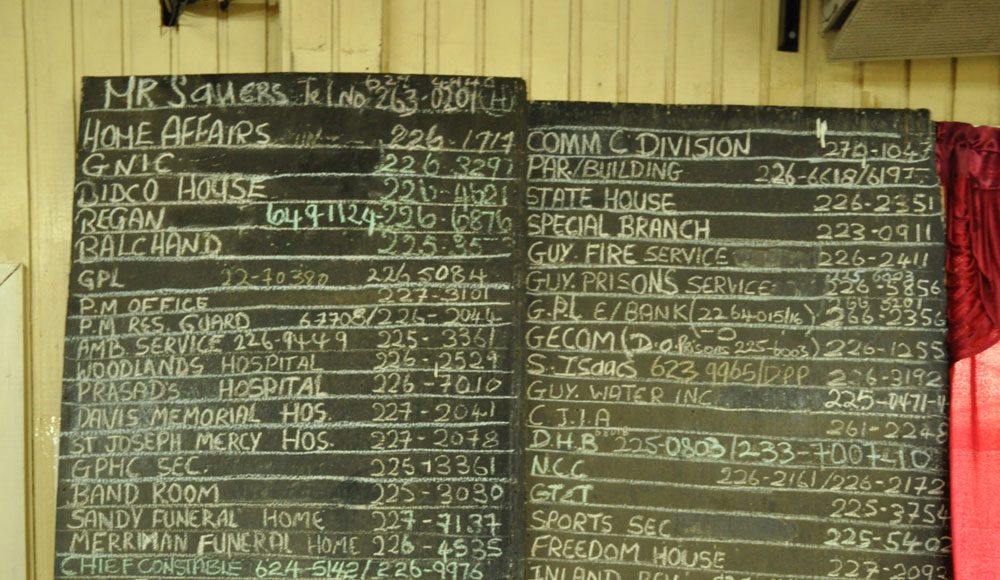 MR SAUERS Tel No 263-0201 (H)
HOME AFFAIRS 226-1717
GNIC 226-3291
BIDCO HOUSE 226-4621
REGAN 649-1124-226-6876
BALCHAND 225-
GPL 226 5084
P.M OFFICE 227-3101
P.M RES. GUARD 67708/226-2044
AMB. SERVICE 226-9449 225-3361
WOODLANDS HOSPITAL 226-2529
PRASAD'S HOSPITAL 226-7010
DAVIS MEMORIAL HOS. 227-2041
ST JOSEPH MERCY HOS. 227-2078
GPHC SEC. 225-3361
BAND ROOM 225-3030
SANDY FUNERAL HOME 227-7137
MERRIMAN FUNEROL HOME 226-4535
CHIEF CONSTABLE 624-5142/226-9976
COMM C DIVISION
PAR/BUILDING 226-6618/
STATE HOUSE 226-2351
SPECIAL BRANCH 223-0911
GUY. FIRE SERVICE 226-2411
GUY. PRISONS SERVICE 226-5856
G.P.L E/BANK (226 4015/16) 266-2356
GECOM (D.O. PRISONS 225-6003) 226-1255
S. Isaacs 623 9965/DPP 226-3192
GUY. WATER INC. 225-0471-4
C.J.I.A 261-2248
D.H.B 225-0803/233-
N.C.C 226-2161/226-2172
GT&T 225-3754
SPORTS SEC 225-5402
FREEDOM HOUSE 227-2093
INLAND REV